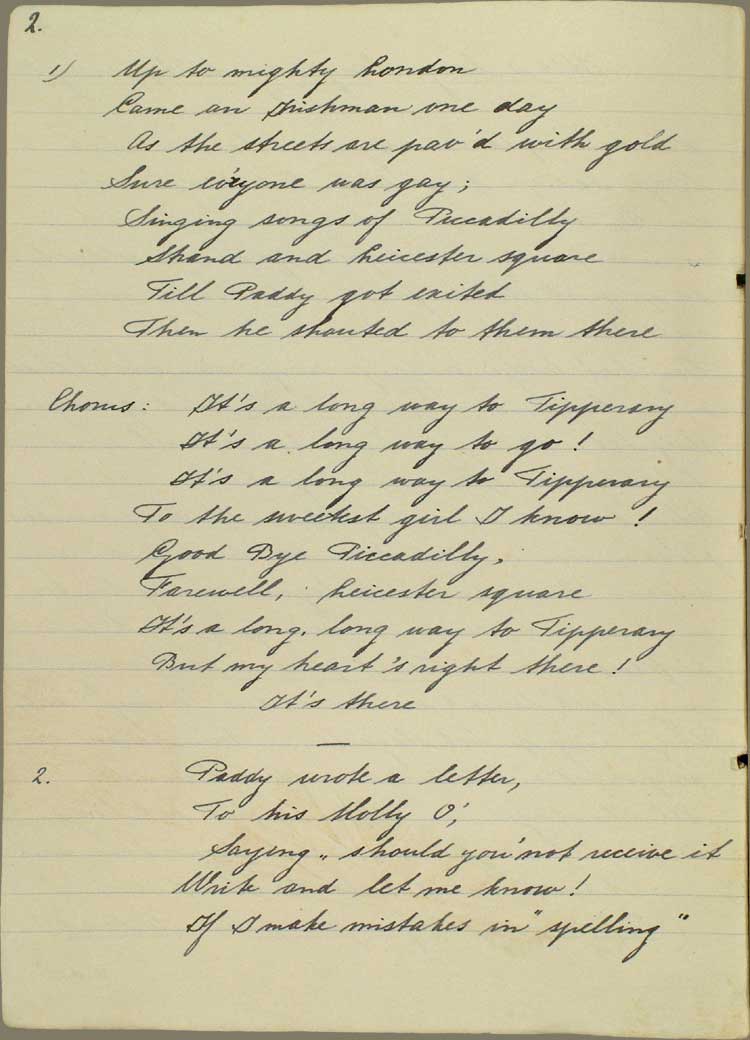 2.
1) Up to mighty London
Came an Irishman one day
As the streets are pav'd with gold
Sure ev'ryone was gay;
Singing songs of Piccadilly
Strand and Leicester square
Till Paddy got exited
Then he shouted to them there
Chorus: It's a long way to Tipperary
It's a long way to go!
It's a long way to Tipperary
To the sweetest girl I know!
Good Bye Piccadilly,
Farewell, Leicester square
It's a long, long way to Tipperary
But my heart's right there!
It's there
2. Paddy wrote a letter,
To his Molly O',
Saying „ should you'not receive it
Write and let me know!
If I make mistakes in "spelling"